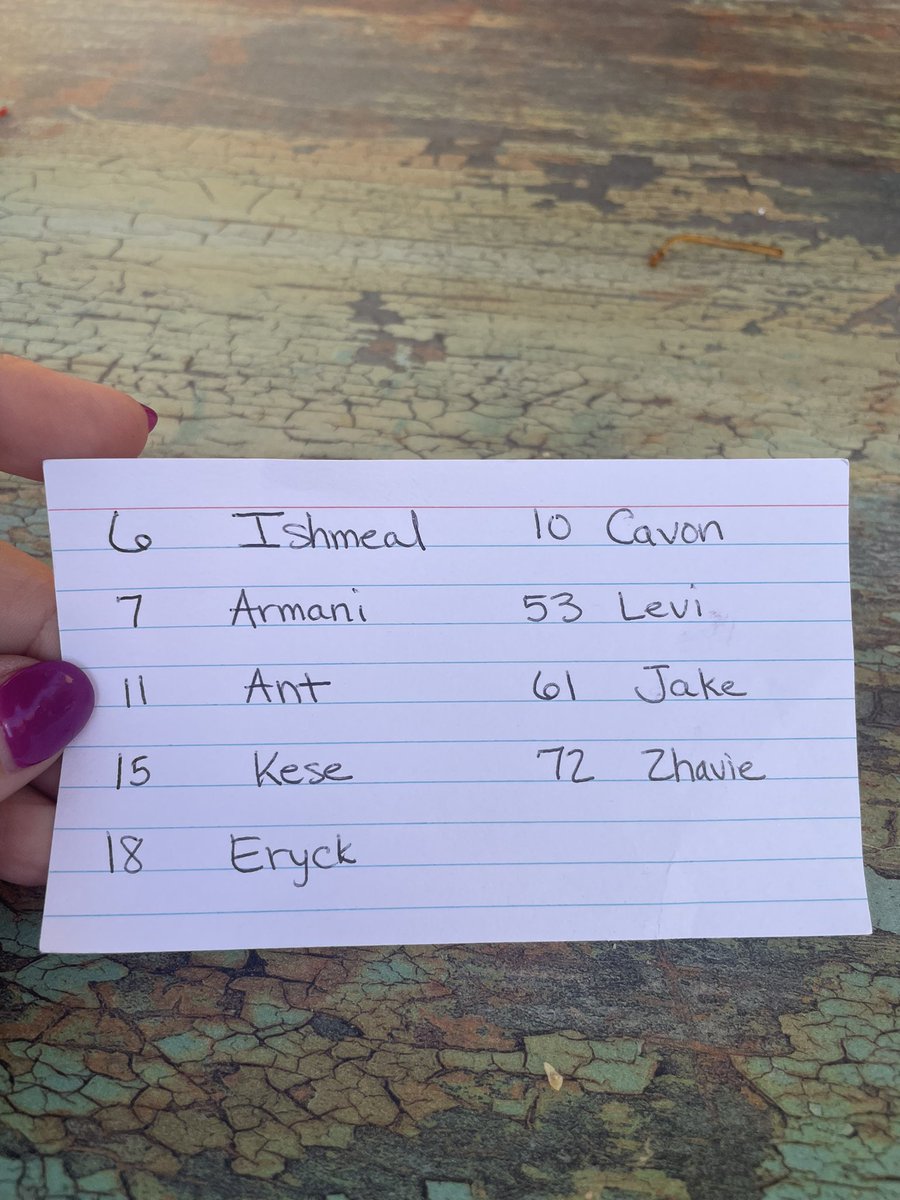 6 Ishmeal 10 Cavon
7 Armani 53 Levi
11 Ant 61 Jake
15 Kese 72 Zhavie
18 Eryck